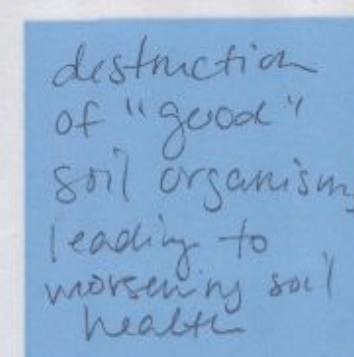 destruction
of "good"
soil organisms
leading to
worsening soil
health